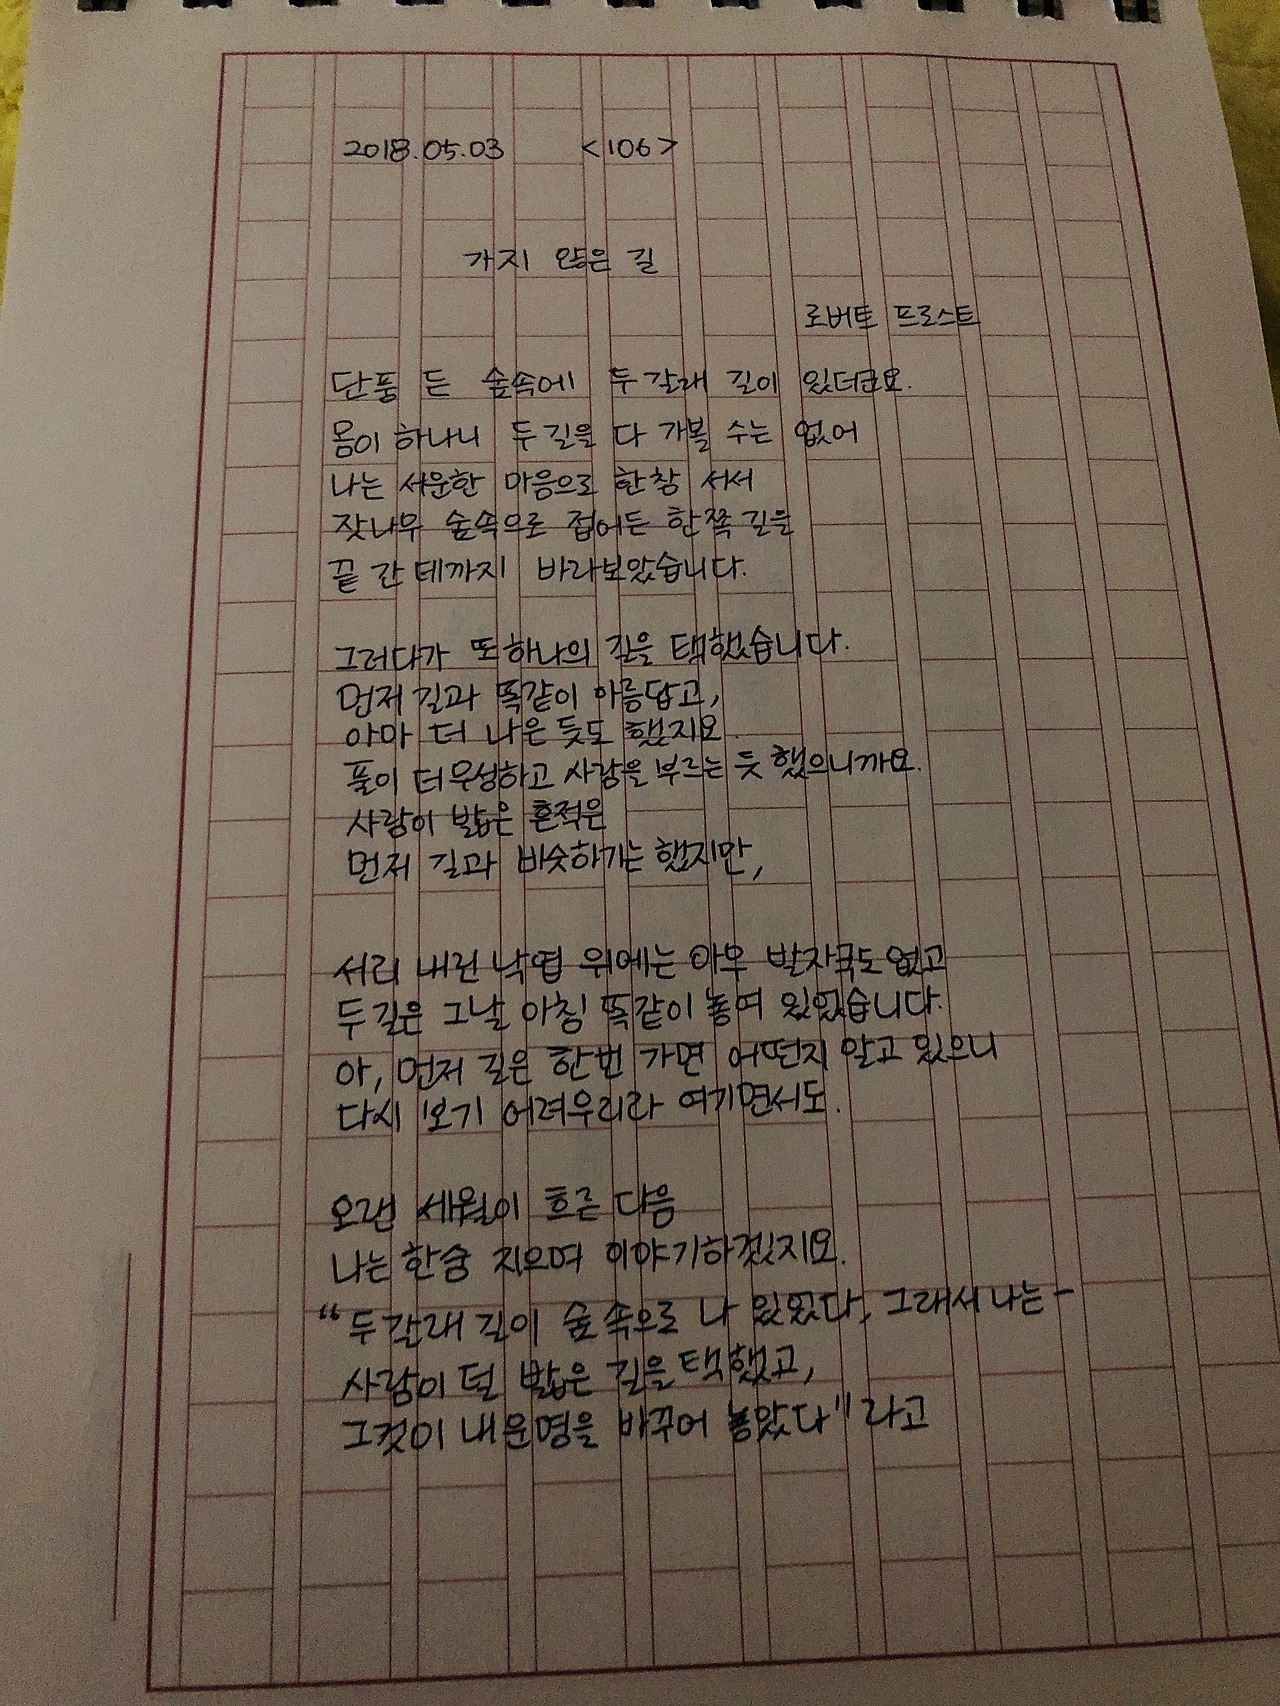 2018.05.03 <106>
가지 않은 길
로버트 프로스트
단풍 든 숲속에 두갈래 길이 있더군요.
몸이 하나니 두길을 다 가볼 수는 없어
나는 서운한 마음으로 한참 서서
잣나무 숲속으로 접어든 한쪽길을
끝 간 데까지 바라보았습니다.
그러다가 또하나의 길을 택했습니다.
먼저 길과 똑같이 아름답고,
아마 더 나은 듯도 했지요.
풀이 더우성하고 사람을 부르는 듯 했으니까요.
사람이 밟은 흔적은
먼저 길과 비슷하기는 했지만,
서리 내린 낙엽 위에는 아무 발자국도 없고
두길은 그날 아침 똑같이 놓여 있었습니다.
아, 먼저 길은 한번 가면 어떤지 알고 있으니
다시 보기 어려우리라 여기면서도.
오랜 세월이 흐른 다음
나는 한숨 지으며 이야기하겠지요.
"두갈래 길이 숲 속으로 나 있었다, 그래서 나는-
사람이 덜 밟은 길을 택했고,
그것이 내 운명을 바꾸어 놓았다"라고